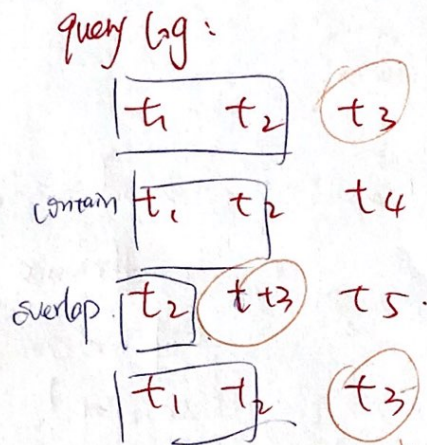 query log:
t1 t2 t3
contain t1 t2 t4
overlap t2 t t3 t5.
t1 t2 t3